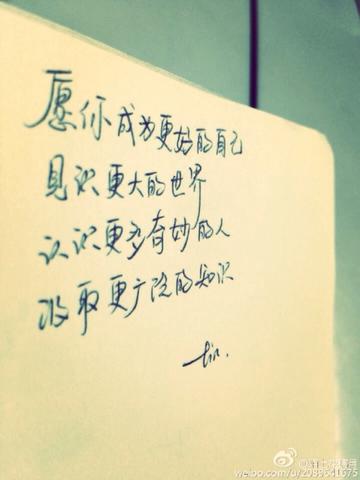 愿你成为更好的自己
见识更大的世界
认识更多奇妙的人
汲取更广泛的知识
tin.